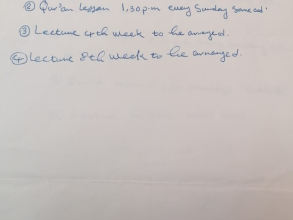 ② Qur'an Lesson 1.30 p.m every Sunday
③ Lecture 4th week to be arranged.
④ Lecture 8th week to be arranged.